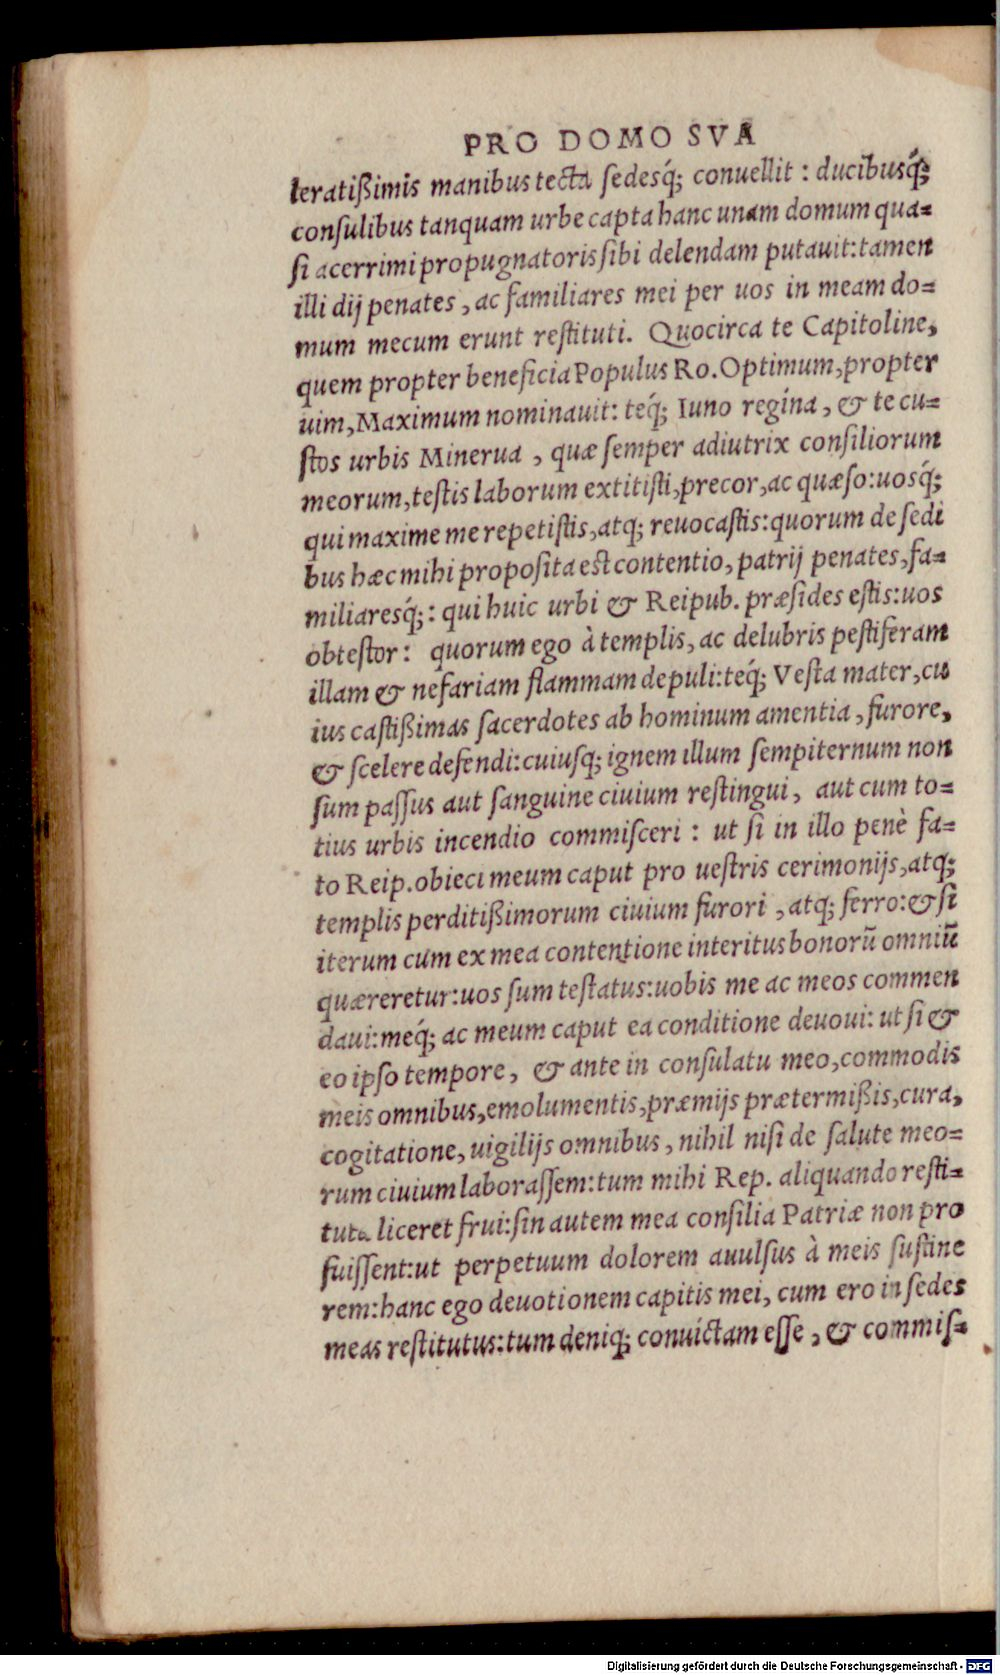 PRO DOMO SVA
leratißimis manibus tecta sedesq́; conuellit : ducibusq́;
consulibus tanquam urbe capta hanc unam domum qua-
si acerrimi propugnatoris sibi delendam putauit: tamen
illi dij penates, ac familiares mei per uos in meam do-
mum mecum erunt restituti. Quocirca te Capitoline,
quem propter beneficia Populus Ro. Optimum, propter
uim, Maximum nominauit: teq́; Iuno regína, & te cu-
stos urbis Minerua , quæ semper adiutrix consiliorum
meorum, testis laborum extitisti, precor, ac quæso: uosq́;
qui maxime me repetistis, atq; reuocastis: quorum de sedi
bus hæc mihi proposita est contentio, patrij penates, fa-
miliaresq́;: qui huic urbi & Reipub. præsides estis: uos
obtestor: quorum ego à templis, ac delubris pestiferam
illam & nefariam flammam depuli: teq́; Vesta mater, cu
ius castißimas sacerdotes ab hominum amentia, furore,
& scelere defendi: cuiusq; ignem illum sempiternum non
sum passus aut sanguine ciuium restingui, aut cum to-
tius urbis incendio commisceri : ut si in illo penè fa-
to Reip. obieci meum caput pro uestris cerimonijs, atq;
templis perditißimorum ciuium furori , atq; ferro: & si
iterum cum ex mea contentione interitus bonorũ omniũ
quæreretur: uos sum testatus: uobis me ac meos commen
daui: meq́; ac meum caput ea conditione deuoui: ut si &
eo ipso tempore, & ante in consulatu meo, commodis
meis omnibus, emolumentis, præmijs prætermißis, cura,
cogitatione, uigilijs omnibus, nihil nisi de salute meo-
rum ciuium laborassem: tum mihi Rep. aliquando resti-
tuta liceret frui: sin autem mea consilia Patriæ non pro
fuissent: ut perpetuum dolorem auulsus à meis sustine
rem: hanc ego deuotionem capitis mei, cum ero in sedes
meas restitutus: tum deniq; conuictam esse, & commis-
Digitalisierung gefördert durch die Deutsche Forschungsgemeinschaft - DFG